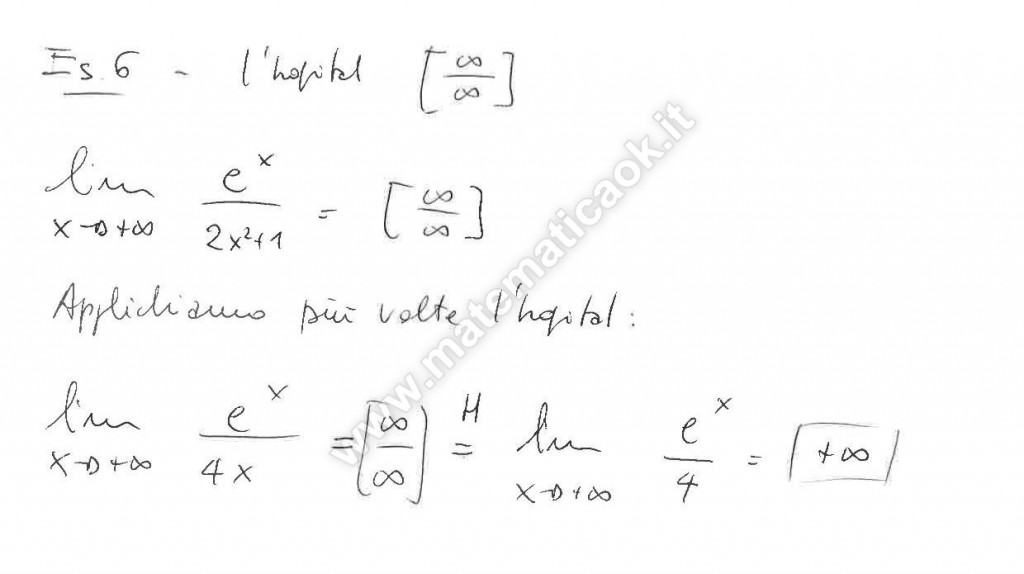 Es. 6 - l'hopital [∞/∞]
lim x→+∞ e^x / 2x²+1 = [∞/∞]
Applichiamo più volte l'hopital:
lim x→+∞ e^x / 4x = [∞/∞] H= lim x→+∞ e^x / 4 = +∞
www.matematicaok.it